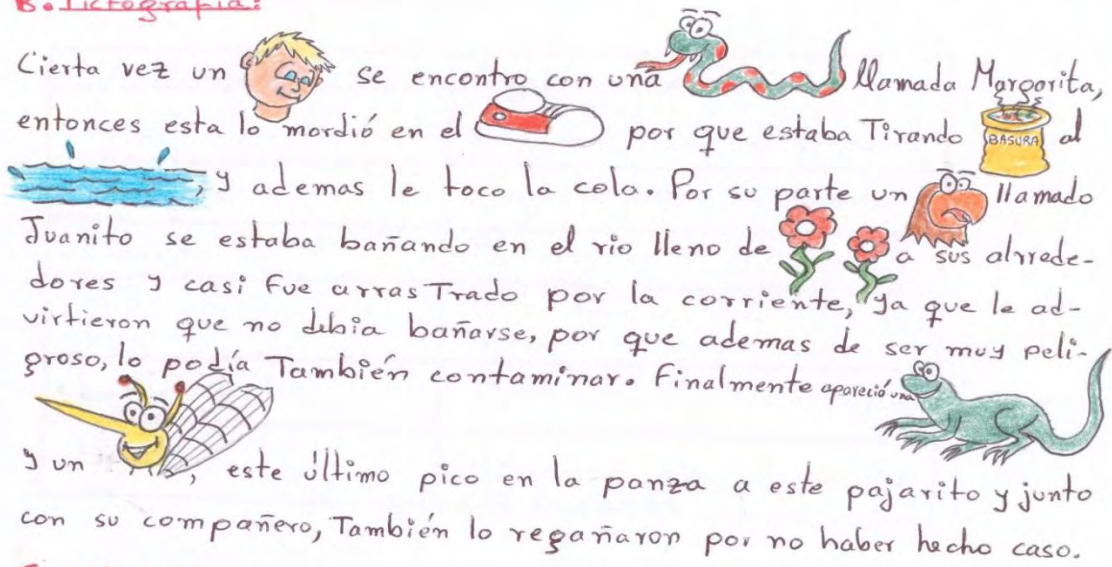 B. Pictografía:
Cierta vez un se encontro con una llamada Margarita,
entonces esta lo mordió en el por que estaba Tirando BASURA al
, y ademas le toco la cola. Por su parte un llamado
Juanito se estaba bañando en el rio lleno de a sus alrrede-
dores y casi fue arrasTrado por la corriente, ya que le ad-
virtieron que no debia bañarse, por que ademas de ser muy peli-
groso, lo podía También contaminar. Finalmente apareció una
y un , este último pico en la panza a este pajarito y junto
con su compañero, También lo regañaron por no haber hecho caso.